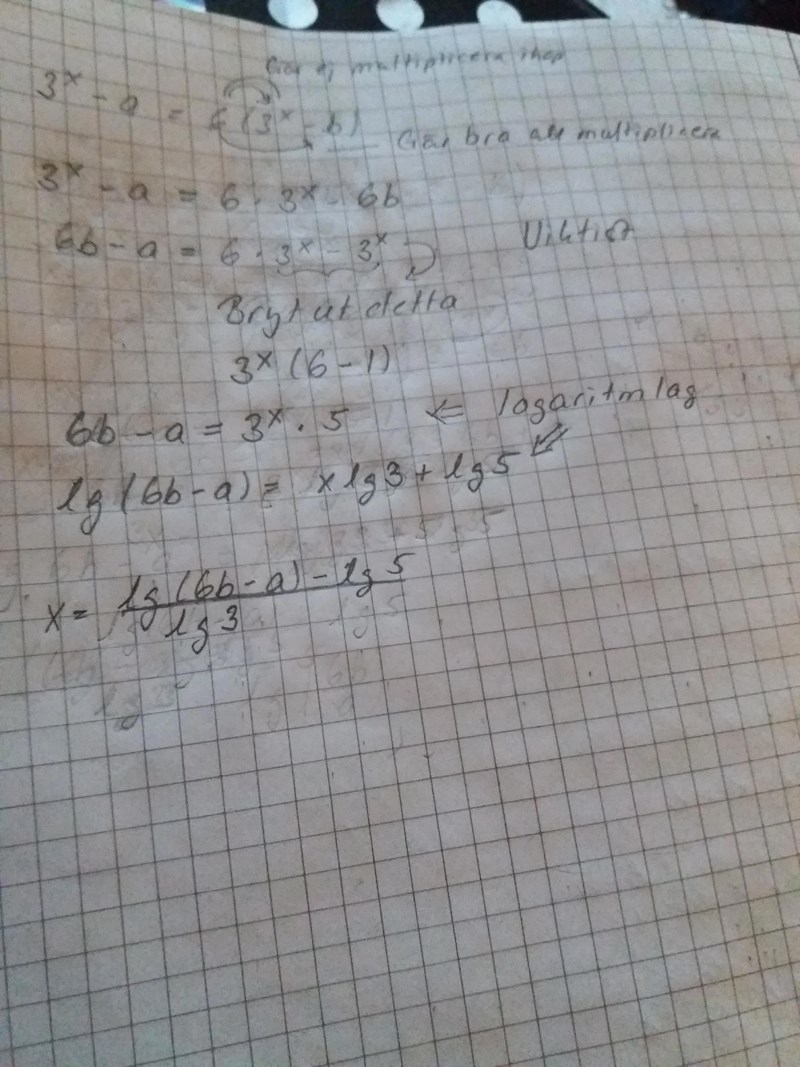 Går ej multiplicera ihop
3ˣ - a = 6 (3ˣ - b)
Går bra att multiplicera
3ˣ - a = 6 · 3ˣ - 6b
6b - a = 6 · 3ˣ - 3ˣ Viktigt
Bryt ut detta
3ˣ (6 - 1)
6b - a = 3ˣ · 5 ⇐ logaritmlag
lg (6b - a) = x lg 3 + lg 5
x = lg (6b - a) - lg 5
lg 3